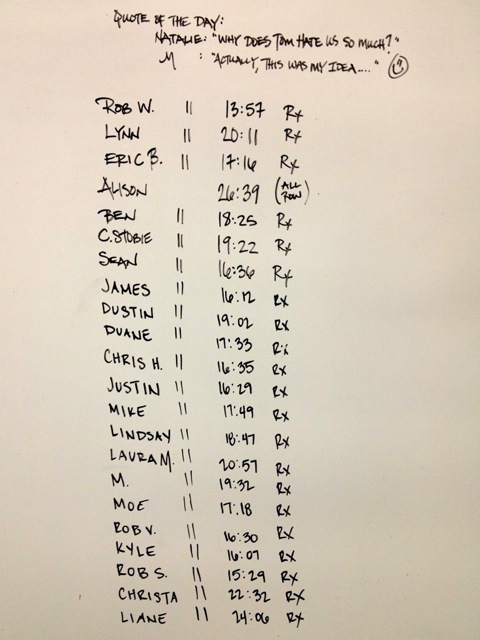 QUOTE OF THE DAY:
NATALIE: "WHY DOES TOM HATE US SO MUCH?"
M : "ACTUALLY, THIS WAS MY IDEA...." ☺
ROB W. || 13:57 Rx
LYNN || 20:11 Rx
ERIC B. || 17:16 Rx
ALISON 26:39 (ALL ROW)
BEN || 18:25 Rx
C.STOBIE || 19:22 Rx
SEAN || 16:36 Rx
JAMES || 16:12 Rx
DUSTIN || 19:02 Rx
DUANE || 17:33 Rx
CHRIS H. || 16:35 Rx
JUSTIN || 16:29 Rx
MIKE || 17:49 Rx
LINDSAY || 18:47 Rx
LAURA M. || 20:57 Rx
M. || 19:32 Rx
MOE || 17:18 Rx
ROB V. || 16:30 Rx
KYLE || 16:07 Rx
ROB S. || 15:29 Rx
CHRISTA || 22:32 Rx
LIANE || 24:06 Rx